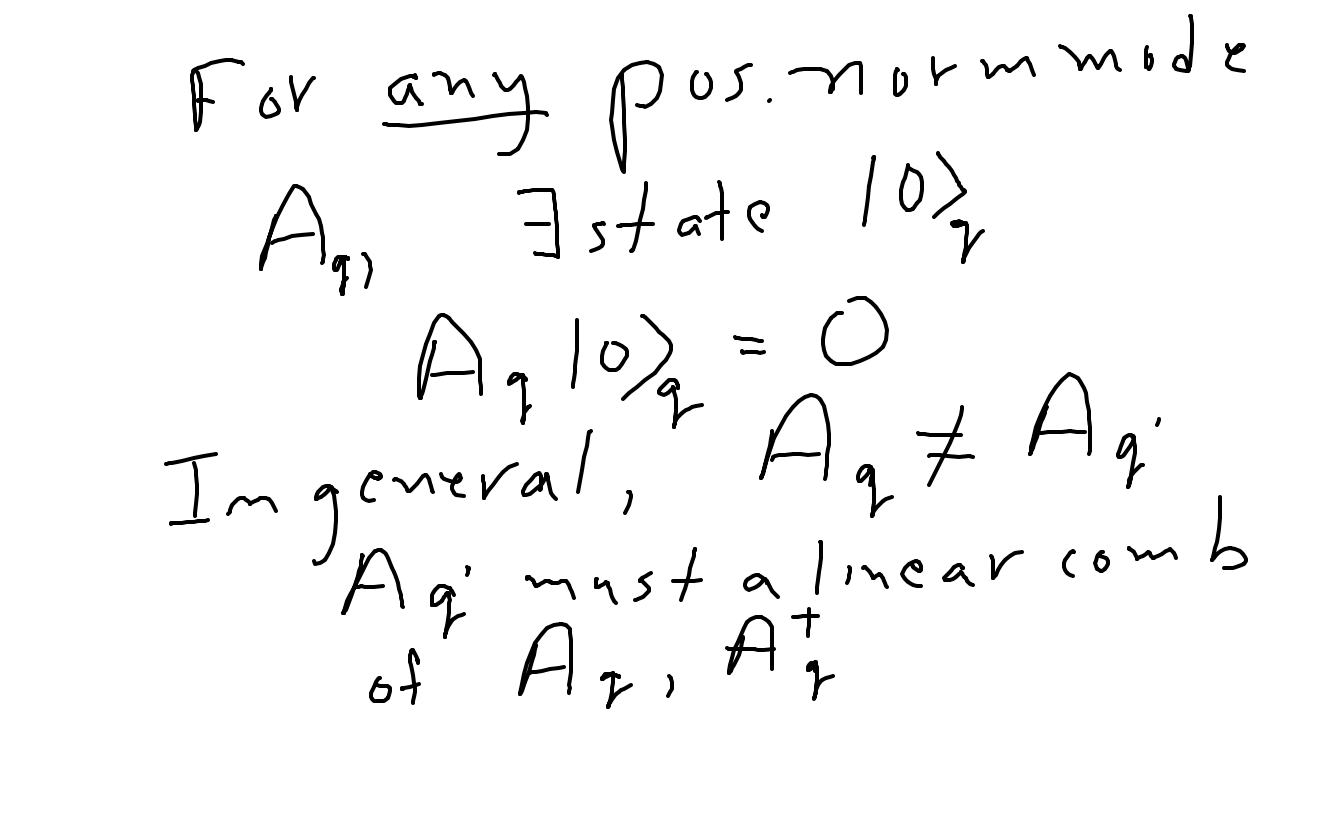 For any pos. norm mode
A_q, ∃ state |0⟩_q
A_q |0⟩_q = 0
In general, A_q ≠ A_q'
A_q' must a linear comb
of A_q, A_q^†